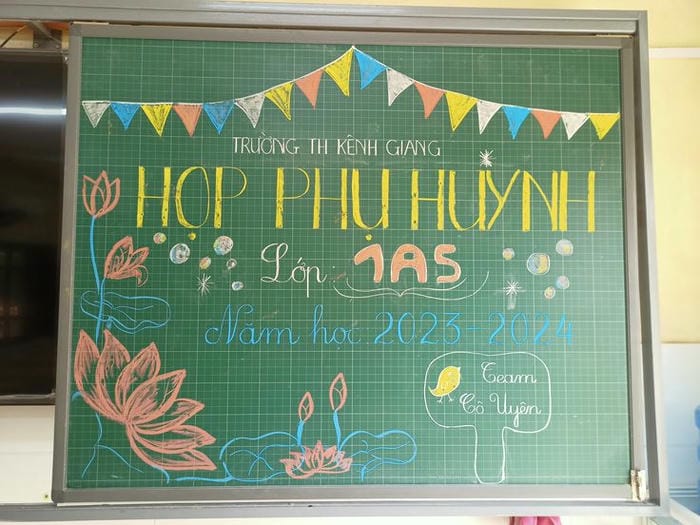 TRƯỜNG TH KÊNH GIANG
HỌP PHỤ HUỲNH
Lớp: 1A5
Năm học: 2023-2024
Team
Cô Uyên